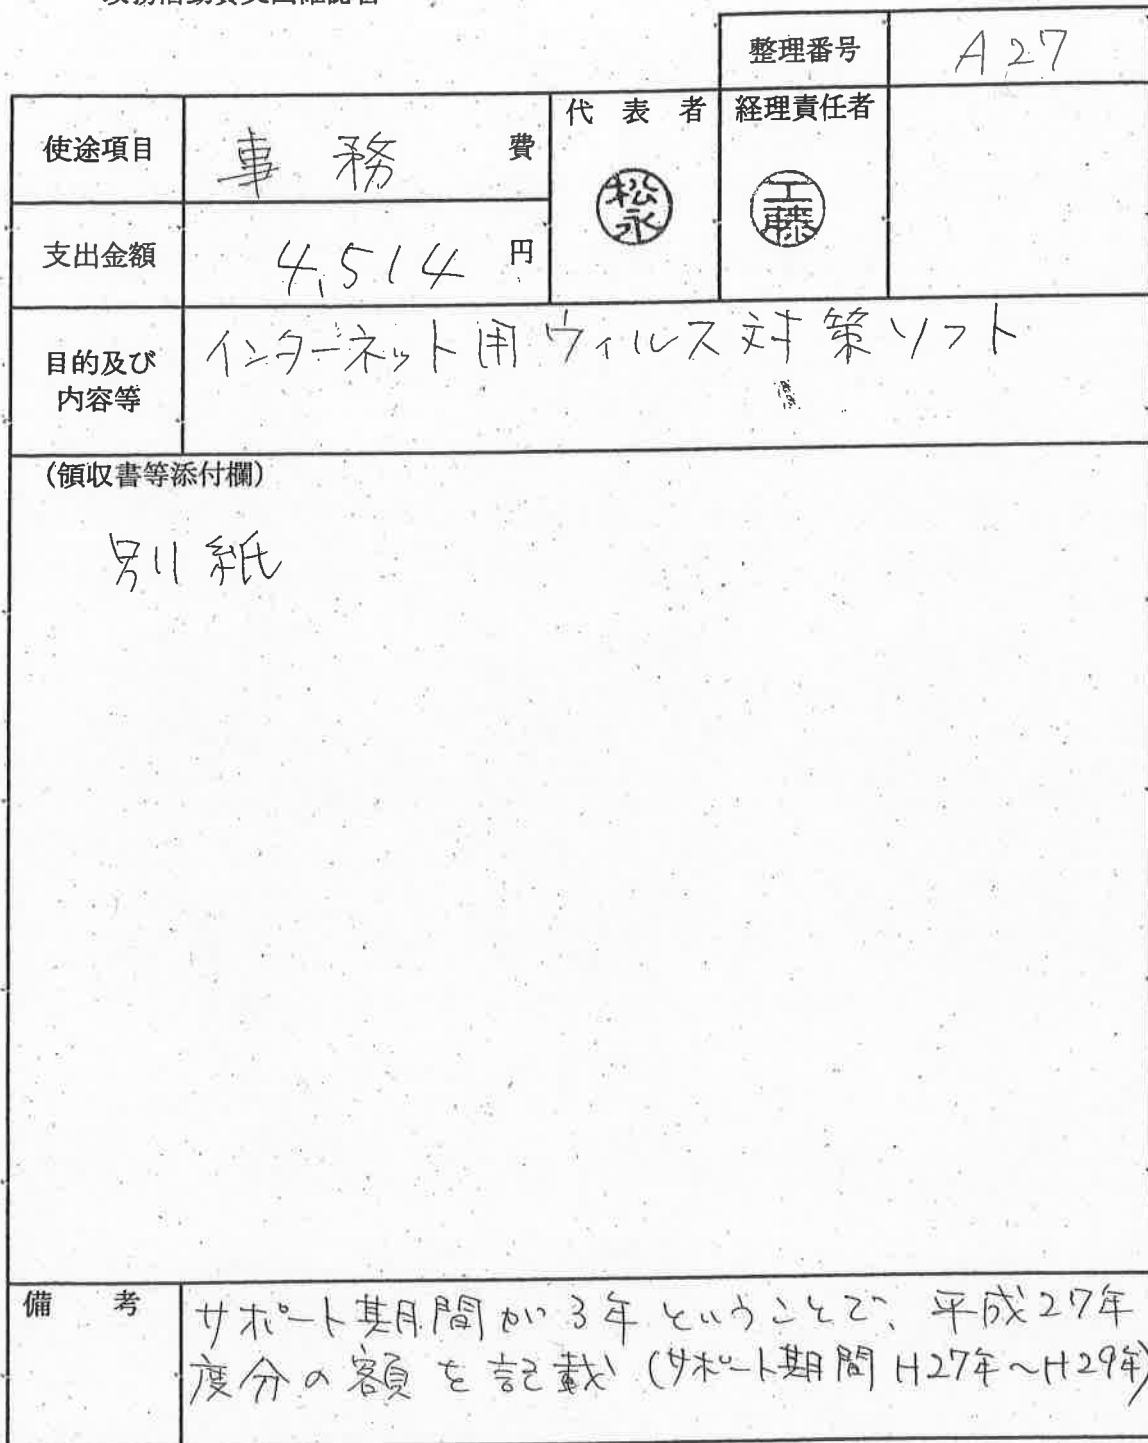 整理番号 A27
使途項目 事務費
代表者 経理責任者
松永 工藤
支出金額 4,514円
目的及び内容等
インターネット用ウィルス対策ソフト
(領収書等添付欄)
別紙
備考
サポート期間が3年ということで、平成27年
度分の額を記載(サポート期間H27年~H29年)